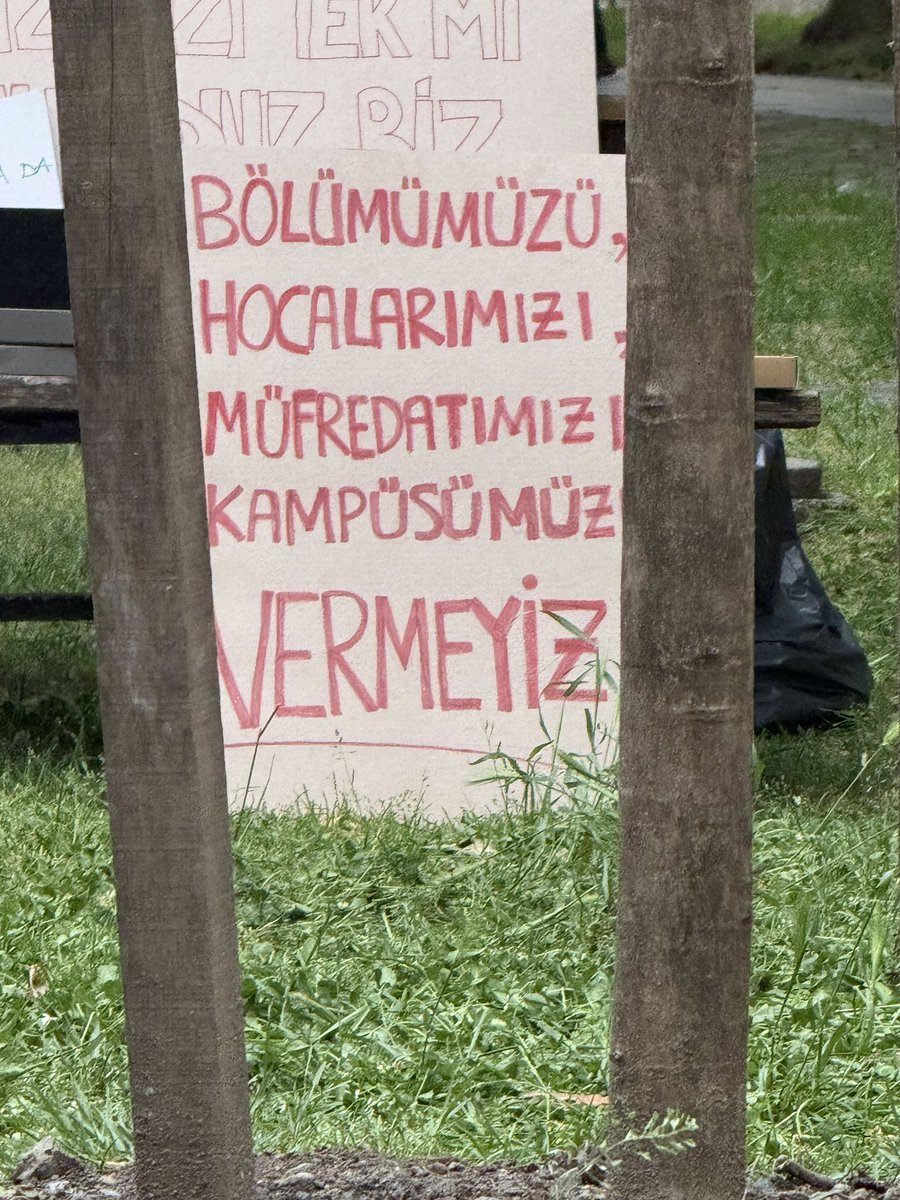 TEK Mİ
BİZ
A DA
BÖLÜMÜMÜZÜ,
HOCALARIMIZI,
MÜFREDATIMIZI
KAMPÜSÜMÜZ
VERMEYİZ